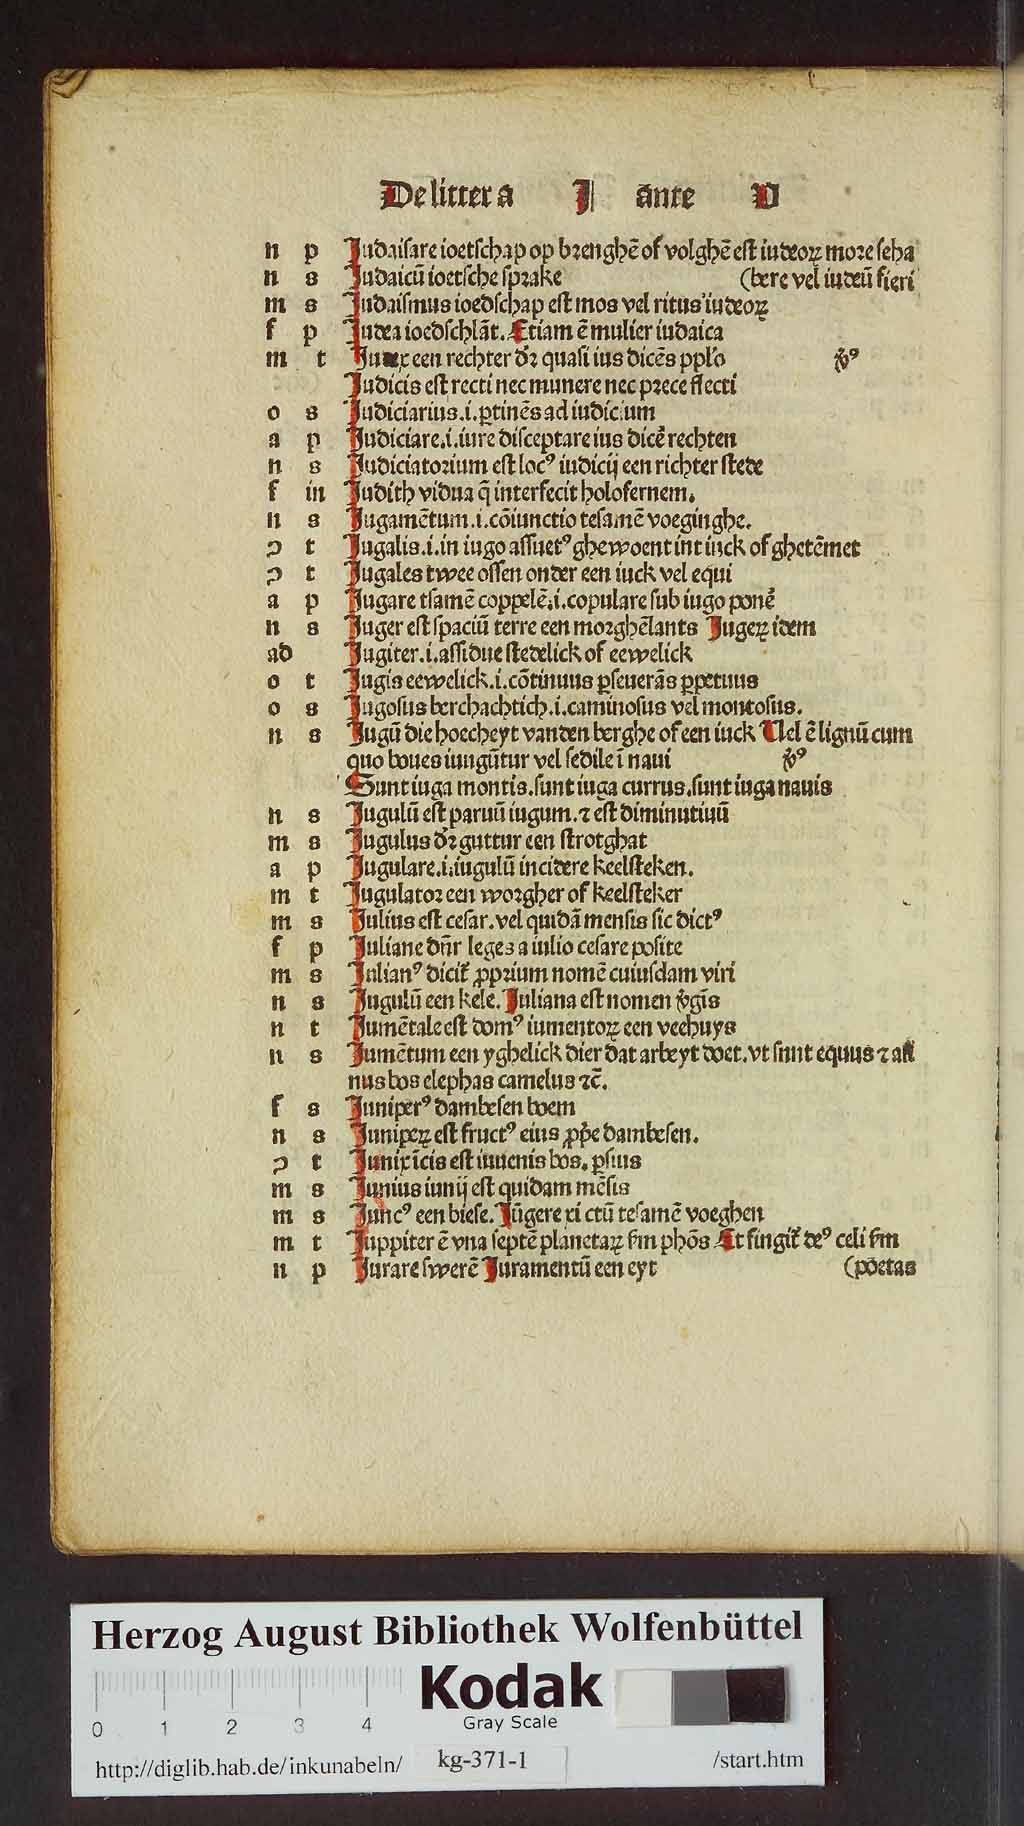 De littera I ante V
n p Iudaisare ioetschap op brenghē of volghē est iudeoꝝ more seha
n s Iudaicū ioetsche sprake (bere vel iudeū fieri
m s Iudaismus ioedschap est mos vel ritus iudeoꝝ
f p Iudea ioedschlāt. Etiam ē mulier iudaica
m t Iudex een rechter dr̄ quasi ius dicēs pplo v̄ꝰ
Iudicis est recti nec munere nec prece flecti
o s Iudiciarius .i. ꝑtinēs ad iudicium
a p Iudiciare .i. iure disceptare ius dicē rechten
n s Iudiciatorium est locꝰ iudicij een richter stede
f in Iudith vidua q̄ interfecit holofernem.
n s Iugamētum .i. cōiunctio tesamē voeginghe.
ɔ t Iugalis .i. in iugo assuetꝰ ghewoent int iuck of ghetēmet
ɔ t Iugales twee ossen onder een iuck vel equi
a p Iugare tsamē coppelē .i. copulare sub iugo ponē
n s Iuger est spaciū terre een morghēlants Iugeꝝ idem
ad Iugiter .i. assidue stedelick of eewelick
o t Iugis eewelick .i. cōtinuus ꝑseuerās ꝑpetuus
o s Iugosus berchachtich .i. caminosus vel montosus.
n s Iugū die hoecheyt vanden berghe of een iuck Vel ē lignū cum
quo boues iungūtur vel sedile ī naui v̄ꝰ
Sunt iuga montis. sunt iuga currus. sunt iuga nauis
n s Iugulū est paruū iugum. ⁊ est diminutiuū
m s Iugulus dr̄ guttur een strotghat
a p Iugulare .i. iugulū incidere keelsteken.
m t Iugulator een worgher of keelsteker
m s Iulius est cesar. vel quidā mensis sic dictꝰ
f p Iuliane dn̄r leges a iulio cesare posite
m s Iulianꝰ dicit̄ ꝓprium nomē cuiusdam viri
n s Iugulū een kele. Iuliana est nomen v̄gīs
n t Iumētale est domꝰ iumentoꝝ een veehuys
n s Iumētum een yghelick dier dat arbeyt doet. vt sunt equus ⁊ asi
nus bos elephas camelus ⁊c̄.
f s Iuniperꝰ dambesen boem
n s Iunipeꝝ est fructꝰ eius ꝓpe dambesen.
ɔ t Iunix īcis est iuuenis bos. ꝑsius
m s Iunius iunij est quidam mēsis
m s Iuncꝰ een biese. Iūgere xi ctū tesamē voeghen
m t Iuppiter ē vna septē planetaꝝ fm̄ phōs Et fingit̄ deꝰ celi fm̄
n p Iurare swerē Iuramentū een eyt (poetas
Herzog August Bibliothek Wolfenbüttel
0 1 2 3 4
Kodak
Gray Scale
http://diglib.hab.de/inkunabeln/ kg-371-1 /start.htm